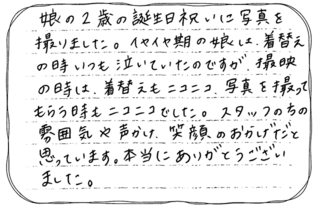 娘の2歳の誕生日祝いに写真を
撮りました。イヤイヤ期の娘は、着替え
の時いつも泣いていたのですが、撮影
の時は、着替えもニコニコ、写真を撮って
もらう時もニコニコでした。スタッフの方の
雰囲気や声かけ、笑顔のおかげだと
思っています。本当にありがとうござい
ました。